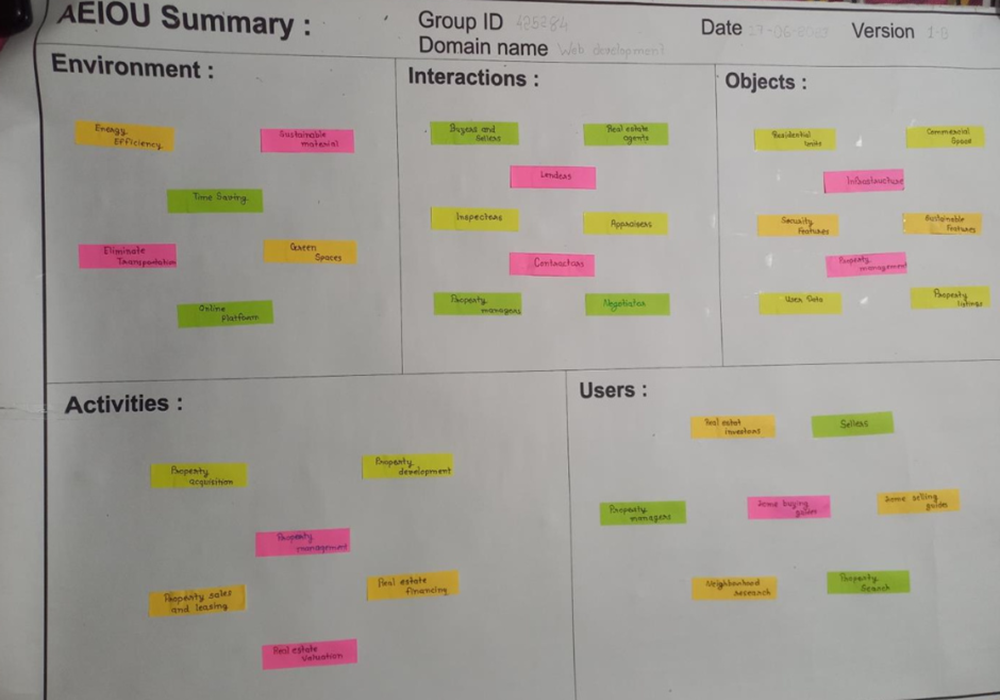 AEIOU Summary :
Group ID 425284
Date 17-06-2023
Version 1.0
Domain name Web development
Environment :
Energy
Efficiency
Sustainable
material
Time Saving
Eliminate
Transportation
Green
Spaces
Online
Platform
Interactions :
Buyers and
Sellers
Real estate
agents
Lenders
Inspectors
Appraisers
Contractors
Property
managers
Negotiator
Objects :
Residential
Units
Commercial
Space
Infrastructure
Security
Features
Sustainable
Features
Property
management
User Data
Property
listings
Activities :
Property
acquisition
Property
development
Property
management
Property sales
and leasing
Real estate
financing
Real estate
Valuation
Users :
Real estat
investors
Sellers
Property
managers
Some buying
guides
Some selling
guides
Neighbouhood
research
Property
Search